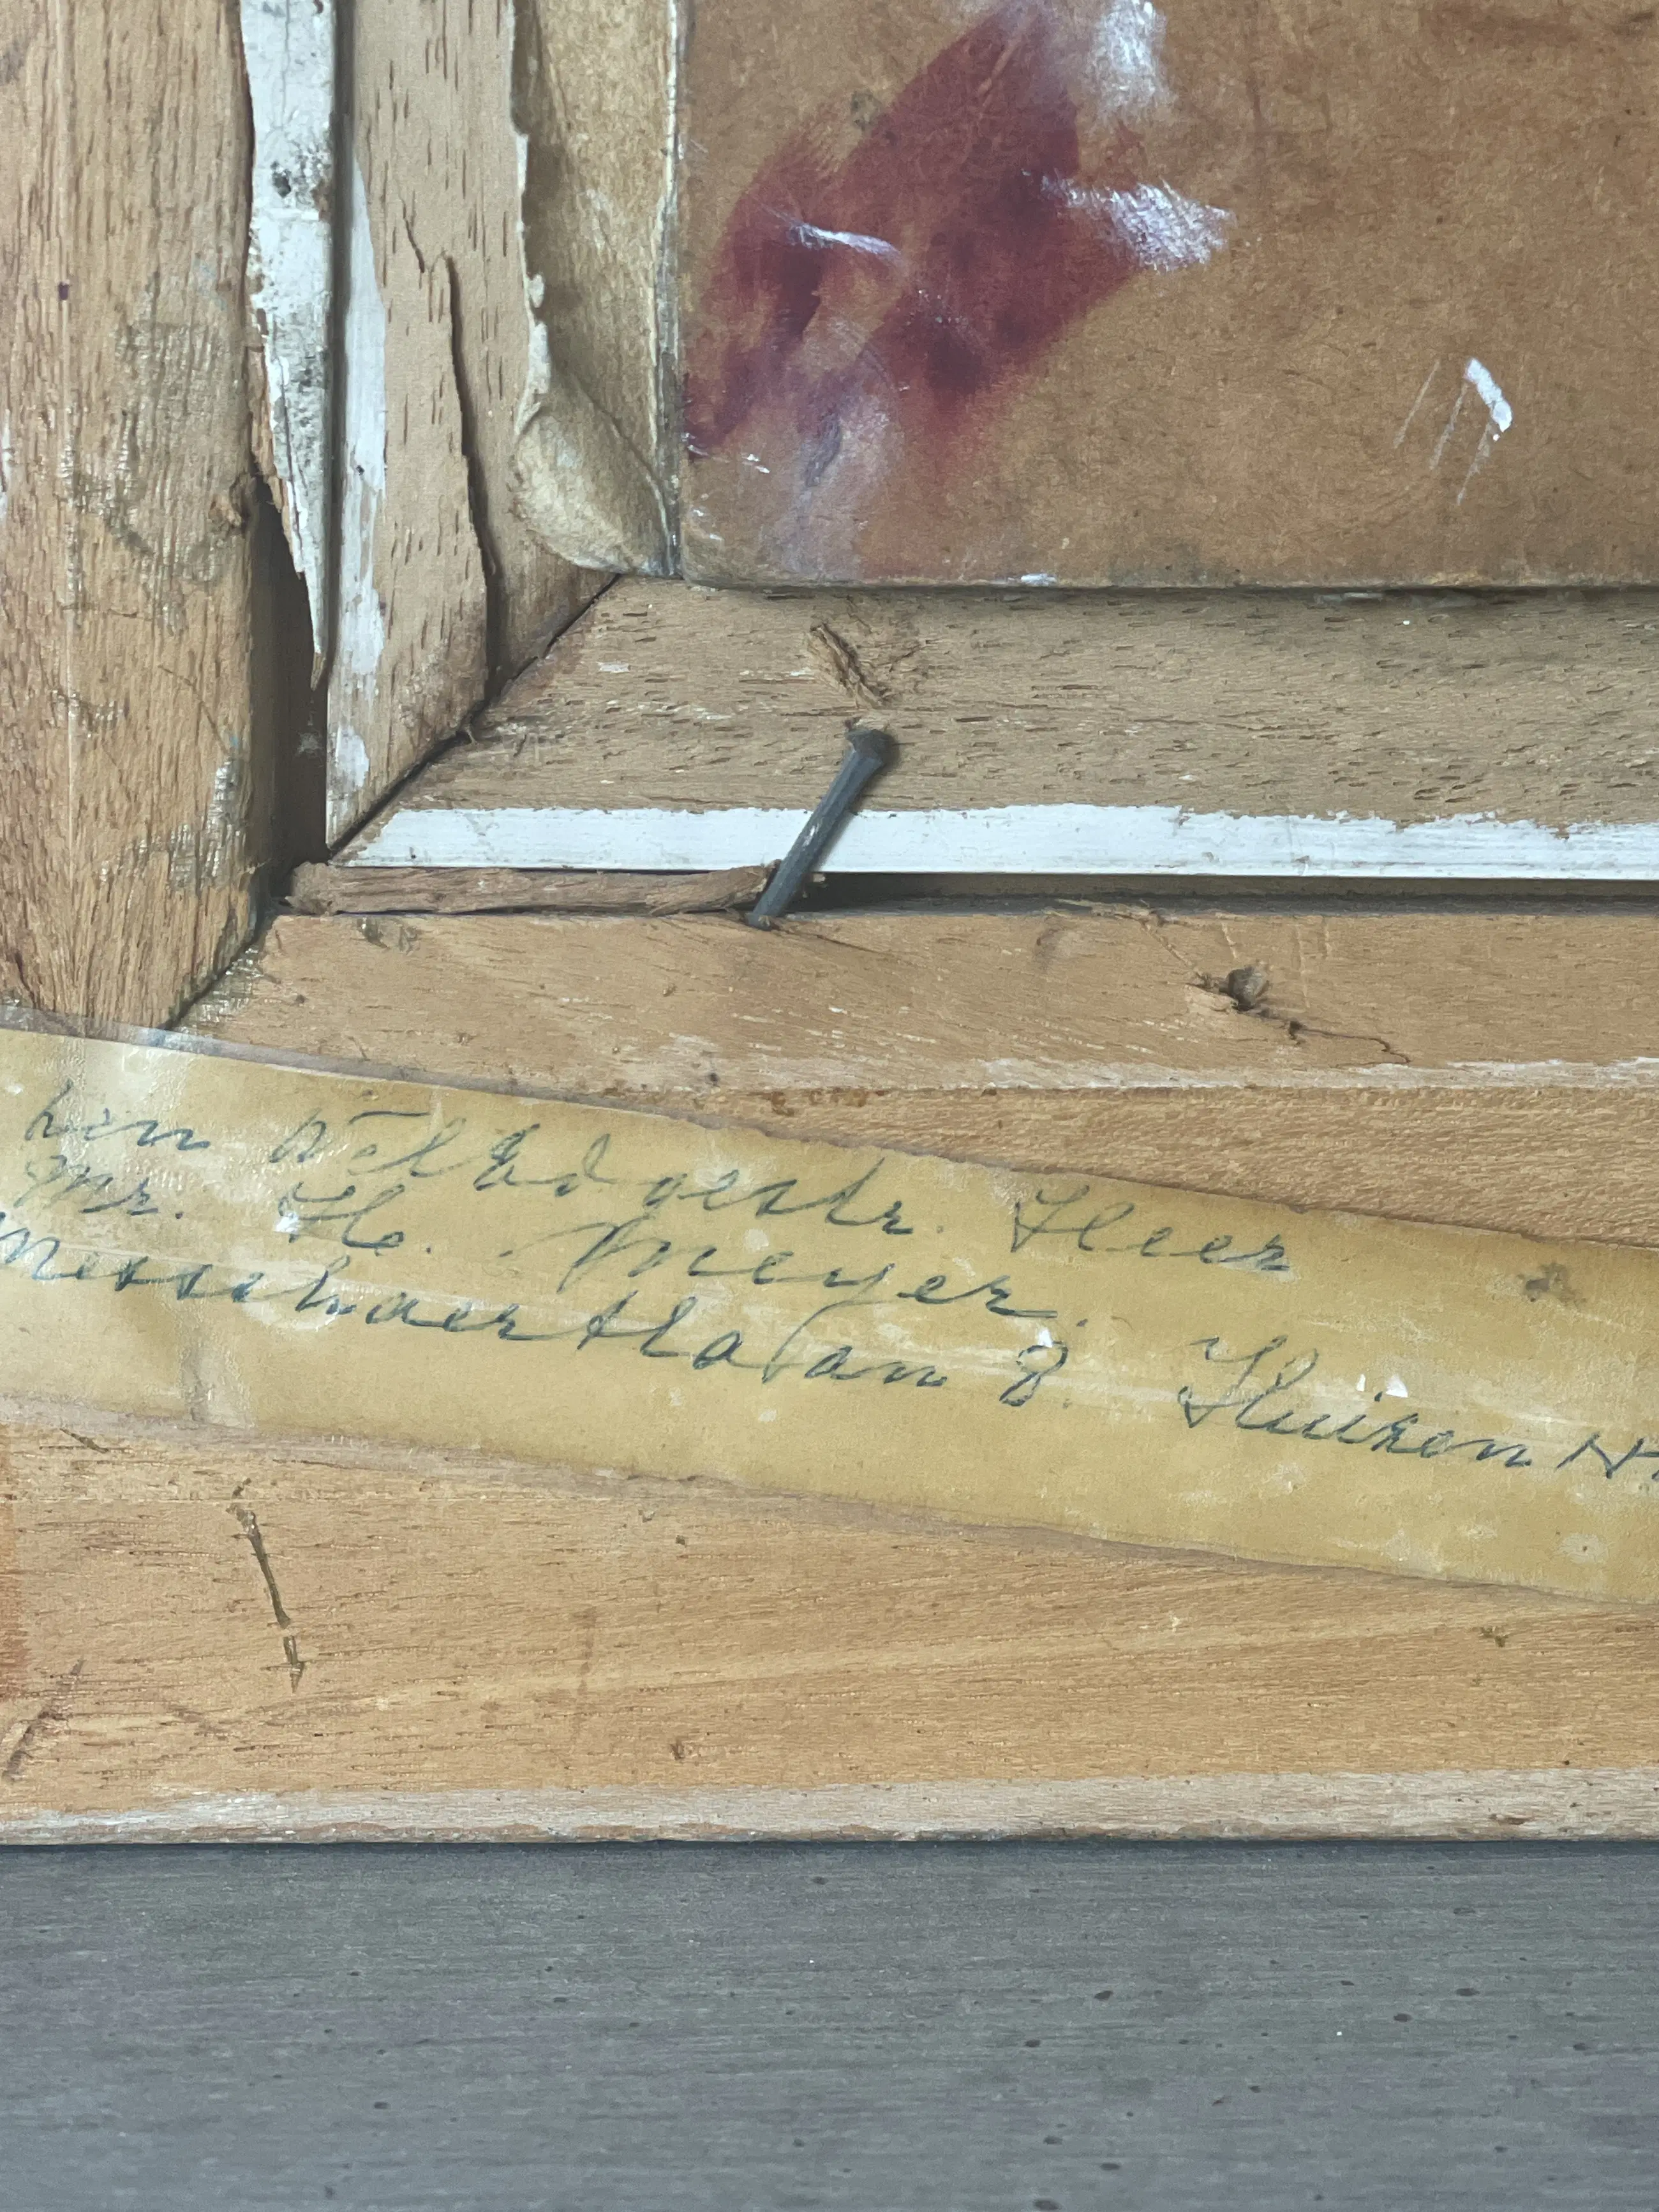 den WelEd gestr. Heer
Mr. H. Meyer.
Messchaertlaan 8. Huizen NH